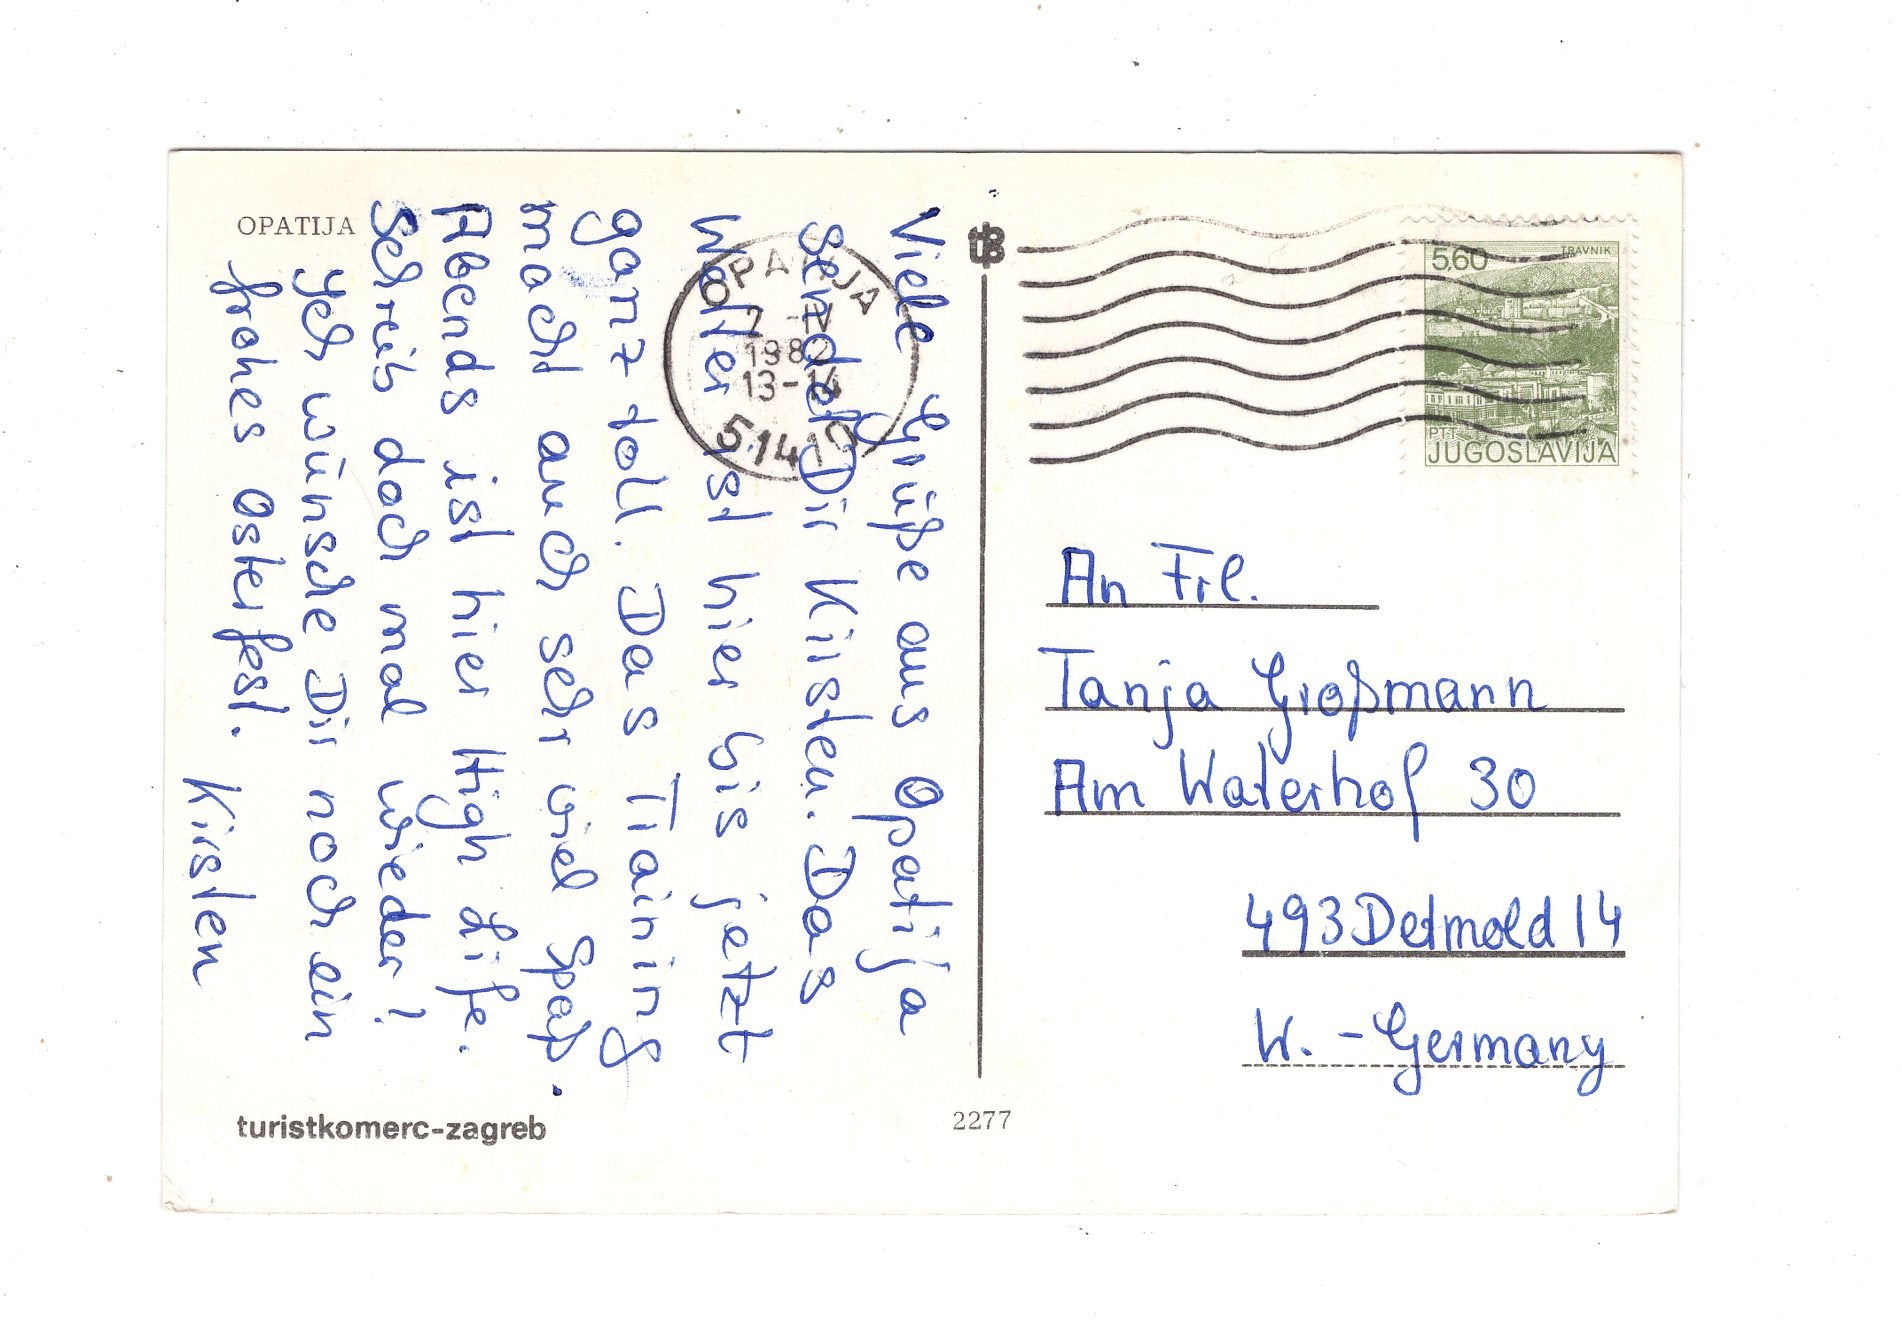 OPATIJA
Viele Grüße aus Opatija
sendet Dir Kirsten. Das
Wetter ist hier bis jetzt
ganz toll. Das Training
macht auch sehr viel Spaß.
Abends ist hier High Life.
Schreib doch mal wieder!
Ich wünsche Dir noch ein
frohes Osterfest.
Kirsten
turistkomerc-zagreb
2277
OPATIJA
2 -IV
1982
13-14
51410
5,60 TRAVNIK
PTT
JUGOSLAVIJA
An Frl.
Tanja Großmann
Am Waterhof 30
493 Detmold 14
W.-Germany